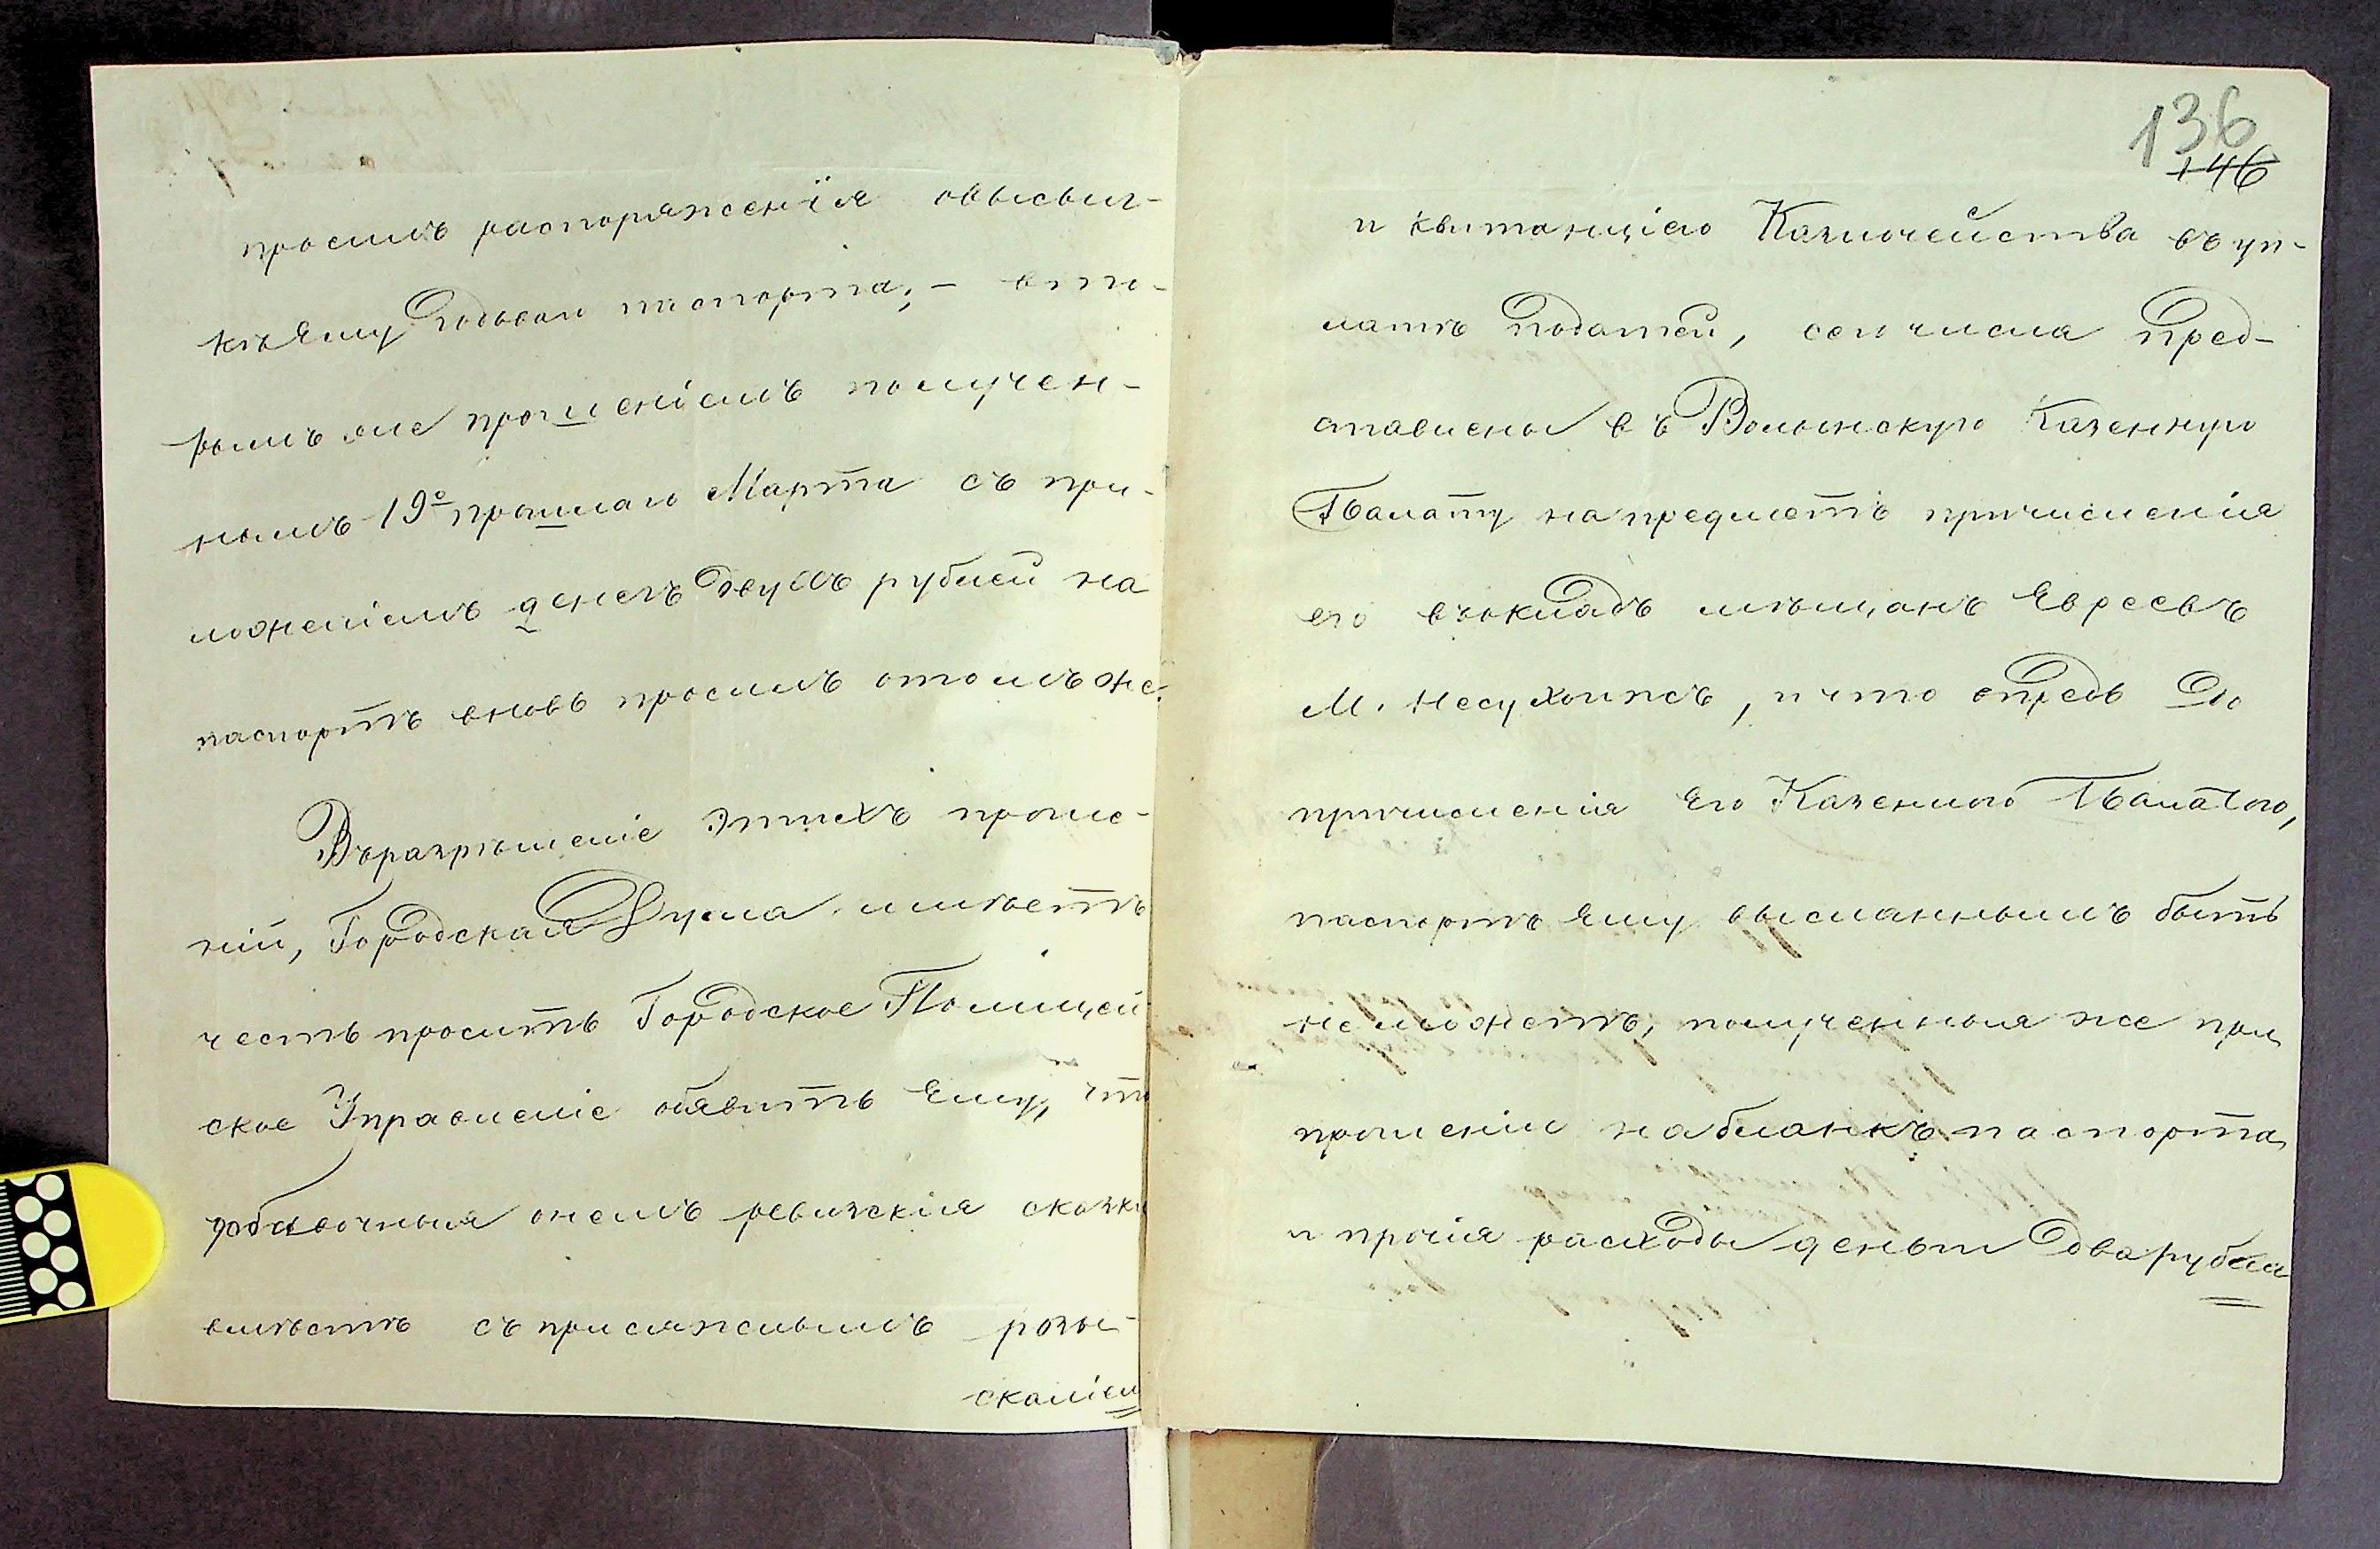 просилъ распоряженія овысыл-
кѣ Ему годоваго паспорта; – вто-
рымъ же прошеніемъ получен-
нымъ 19го прошлаго Марта съ при-
ложеніемъ денегъ двухъ рублей на
паспортъ вновь просилъ отомъ же.
Въразрѣшеніе этихъ проше-
ній, Городская Дума имѣетъ
честь просить Городское Полицей-
ское Управленіе обявить Ему, что
добавочныя онемъ ревизскія сказки
вмѣстѣ съ присяжнымъ розы-
сканіем
136
146
и квитанціею Казначейства въ уп-
латѣ податей, сего числа пред-
ставлены въ Волынскую Казенную
Палату на предметъ причисленія
его въокладъ мѣщанъ Евреевъ
М. Несухоижъ, и что впредь до
причисленія Его Казенною Палатою,
паспортъ Ему высланнымъ быть
не можетъ, полученныя же при
прошеніи на бланкъ паспорта
и прочія расходы деньги два рубля